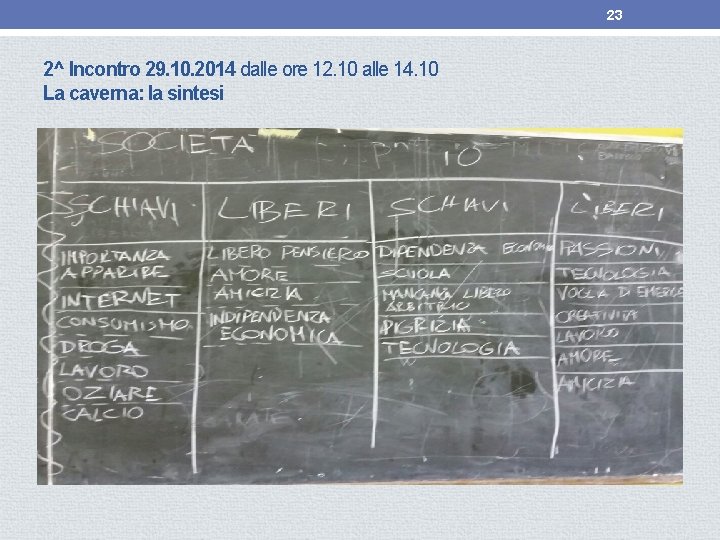 23
2^ Incontro 29.10.2014 dalle ore 12.10 alle 14.10
La caverna: la sintesi
SOCIETÀ
IO
SCHIAVI
LIBERI
SCHIAVI
LIBERI
IMPORTANZA
APPARIRE
INTERNET
CONSUMISMO
DROGA
LAVORO
OZIARE
CALCIO
LIBERO PENSIERO
AMORE
AMICIZIA
INDIPENDENZA
ECONOMICA
DIPENDENZA
SCUOLA
MANCANZA LIBERO
ARBITRIO
PIGRIZIA
TECNOLOGIA
PASSIONI
TECNOLOGIA
VOGLIA DI
CREATIVITÀ
LAVORO
AMORE
AMICIZIA